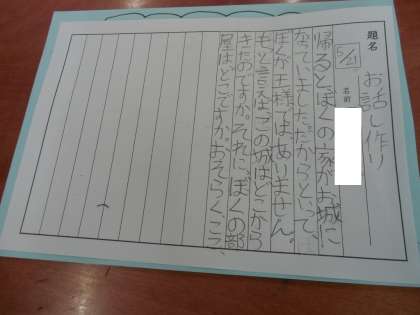 題名
お話し作り
5/21
名前
帰るとぼくの家がお城に
なっていました。だからといって、
ぼくが王様ではありません。
もっと言えばこの城はどこから
きたのですか。それに、ぼくの部
屋は、どこですか。おそらくここ、